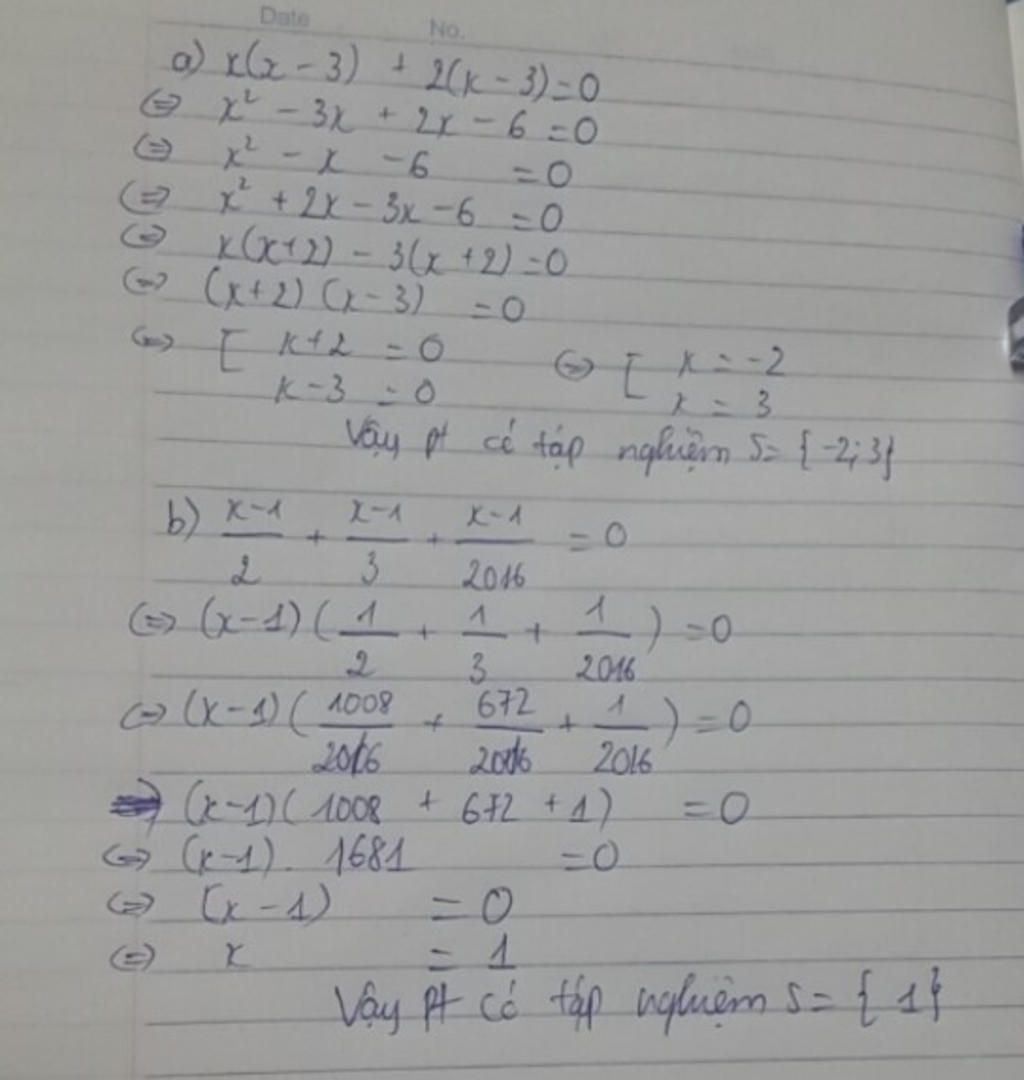 Date No.
a) x(x - 3) + 2(x - 3) = 0
⇔ x² - 3x + 2x - 6 = 0
⇔ x² - x - 6 = 0
⇔ x² + 2x - 3x - 6 = 0
⇔ x(x+2) - 3(x+2) = 0
⇔ (x+2)(x-3) = 0
⇔ [ x+2 = 0 ⇔ [ x = -2
x-3 = 0 x = 3
Vậy pt có tập nghiệm S = {-2; 3}
b) (x-1)/2 + (x-1)/3 + (x-1)/2016 = 0
⇔ (x-1)(1/2 + 1/3 + 1/2016) = 0
⇔ (x-1)(1008/2016 + 672/2016 + 1/2016) = 0
⇔ (x-1)(1008 + 672 + 1) = 0
⇔ (x-1). 1681 = 0
⇔ (x-1) = 0
⇔ x = 1
Vậy pt có tập nghiệm S = {1}